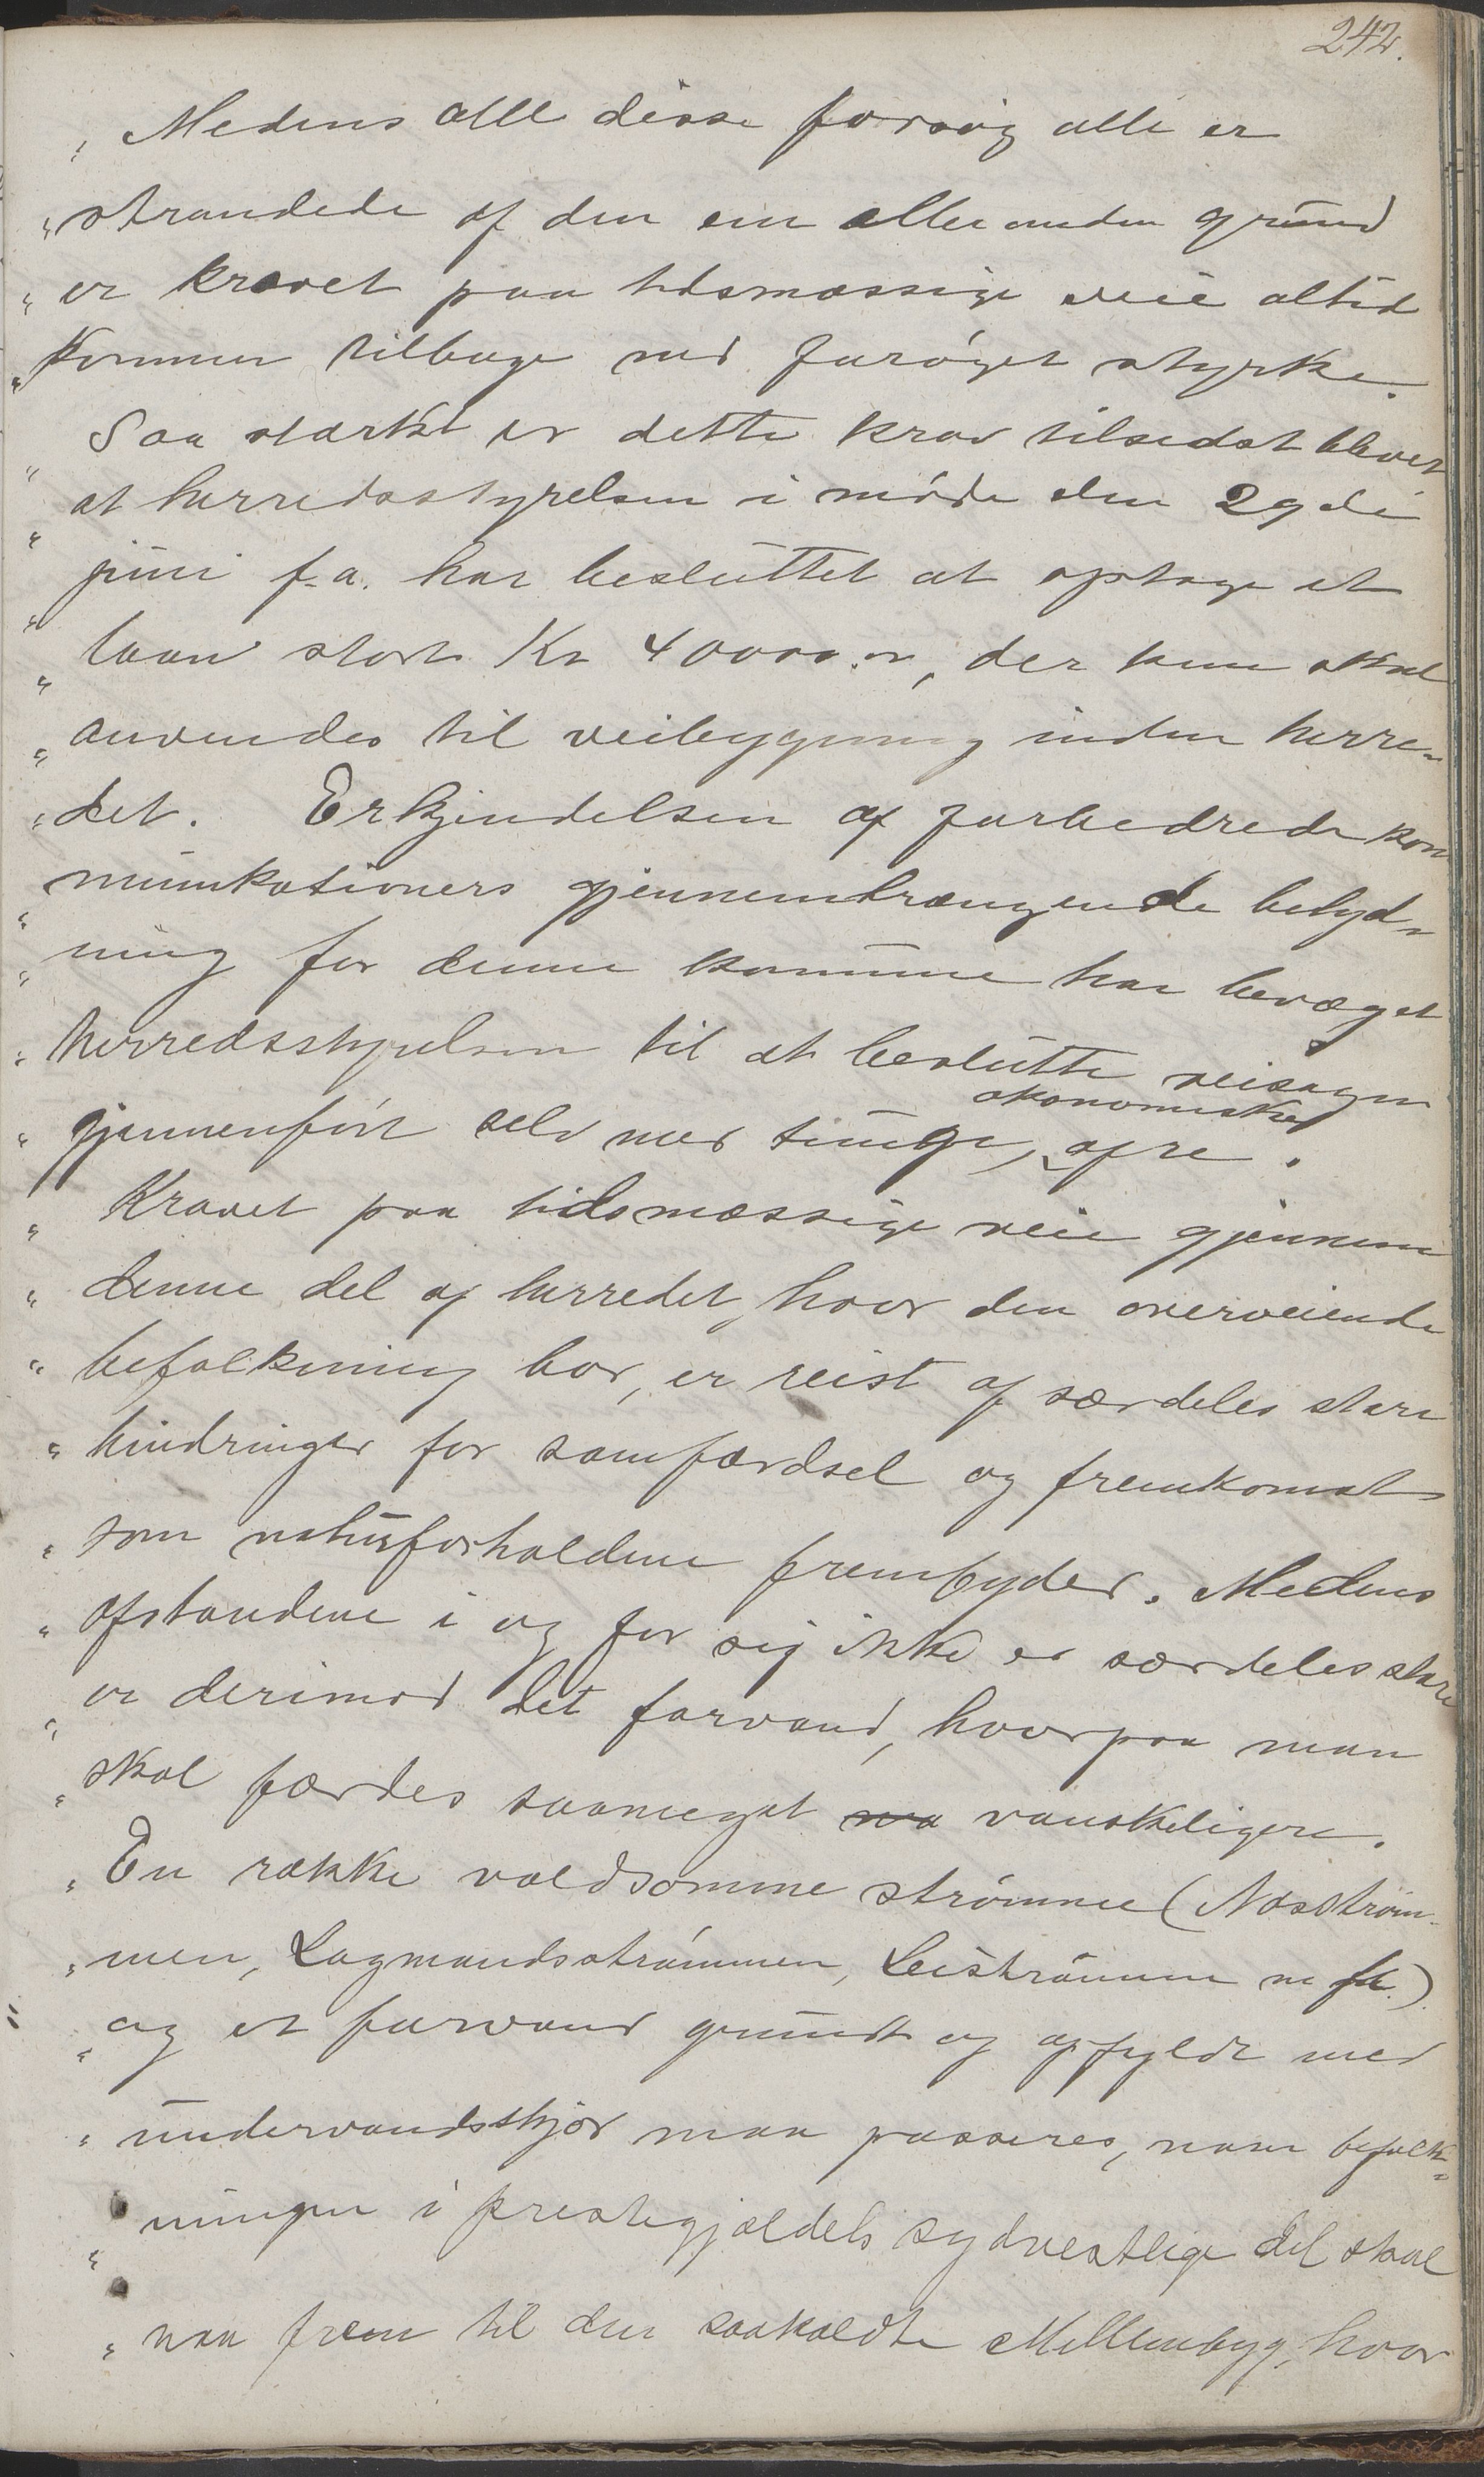 242.
„ Medens alle disse forsøg alle er
„ strandede af den ene eller anden grund
„ er kravet paa tidsmæssige veie altid
„ kommen tilbage med forøget styrke.
Saa stærkt er dette krav tilsidst blevet
„ at herredsstyrelsen i møde den 29de
„ juni f.a. har besluttet at optage et
„ laan stort Kr 40000.00, der kun skal
„ anvendes til veibygning inden herre-
„ det. Erkjendelsen af forbedrede kom
munikationers gjennemtrængende betyd-
„ ning for denne kommune har bevæget
„ herredsstyrelsen til at beslutte veisagen
økonomiske
„ gjennemført selv med tunge, ofre.
„ Kravet paa tidsmæssige veie gjennem
„ denne del af herredet, hvor den overveiende
„ befolkning bor, er reist af særdeles store
„ hindringer for samfærdsel og fremkomst
„ som naturforholdene frembyder. Medens
„ afstandene i og for sig ikke er særdeles store
„ er derimod det farvand, hvorpaa man
„ skal færdes saameget va vanskeligere.
„ En række voldsomme strømme (Næsstrøm-
„ men, Lagmandsstrømmen, Leistrømmen m fl.)
„ og et farvand grundt og opfyldt med
„ undervandsskjær maa passeres, naar befolk-
„ ningen i prestegjældets sydvestlige del skal
„ naa frem til den saakaldte Mellembyg, hvor